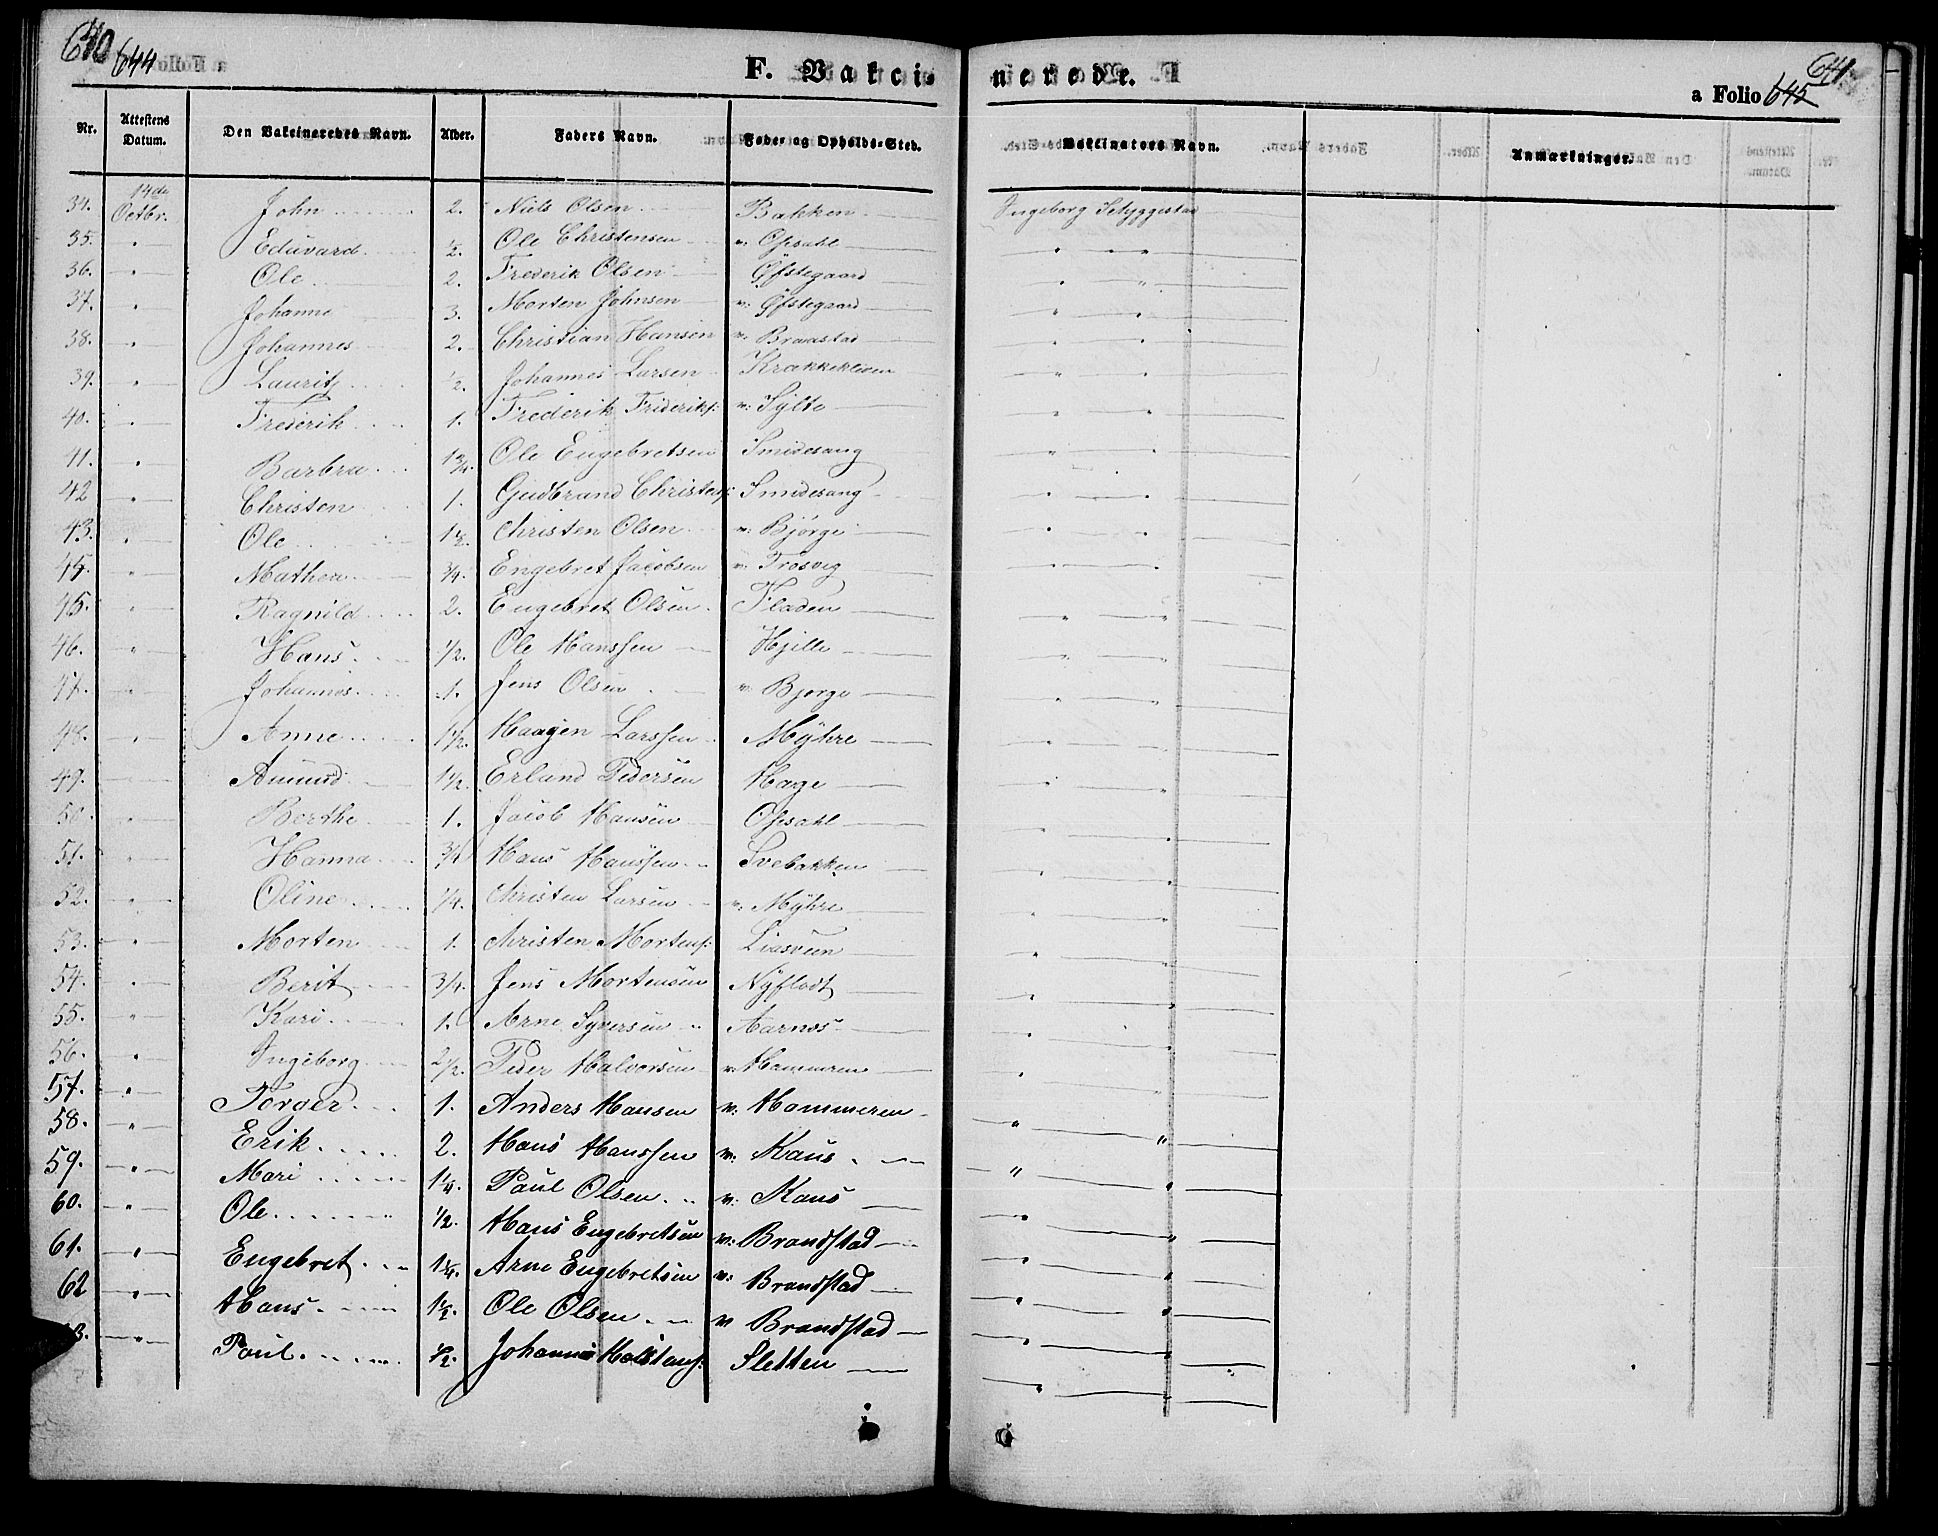 640 644
F. Vakci-
nerede.
641
a Folio 645
Nr. Attestens Datum. Den Vakcineredes Navn. Alder. Faders Navn. Føde- og Opholds-Sted. Vakcinators Navn. Anmærkninger.
34. 14de Octbr. John 2. Niels Olsen Bakken Ingeborg
35. " Eduvard ½. Ole Christensen v. Opsahl " "
36. " Ole 2. Frederik Olsen Øfstegaard " "
37. " Johanne 3. Morten Johnsen v. Øfstegaard " "
38. " Johannes 2. Christian Hansen v. Brandstad " "
39. " Lauritz ½. Johannes Larsen Krækkekleven " "
40. " Frederik 1. Frederik Frideriks: v. Sylte " "
41. " Barbra 1¾. Ole Engebretsen Smidesang " "
42 " Christen 1. Gudbrand Christens: Smidesang " "
43. " Ole 1½. Christen Olsen v. Bjørge " "
44. " Mathea ¾. Engebret Jacobsen v. Trosvig " "
45. " Ragnild 2. Engebret Olsen Fladen " "
46. " Hans ½. Ole Hanssen Hjille " "
47. " Johannes 1. Jens Olsen v. Bjørge " "
48. " Anne 1½. Haagen Larssen Myhre " "
49. " Amund 1½. Erland Pedersen Hage " "
50. " Berthe 1. Jacob Hansen Opsahl " "
51. " Hanna ¾ Hans Hanssen Svebakken " "
52. " Oline ¼. Christen Larsen v. Myhre " "
53. " Morten 1. Christen Mortens: Liasveen " "
54. " Berit ¾. Jens Mortensen Nyflodt " "
55. " Kari 1. Arne Syversen Aarnes " "
56. " Ingeborg 2½. Peder Halvorsen v. Hammeren " "
57. " Torger 1. Anders Hansen v. Hammeren " "
58. " Erik 2. Hans Hanssen v. Kaus " "
59. " Mari 1¼. Paul Olsen v. Kaus " "
60. " Ole ½. Hans Engebretsen v: Brandstad " "
61. " Engebret 1¼. Arne Engebretsen v. Brandstad " "
62 " Hans 1½. Ole Olsen v Brandstad " "
3. " Paul ½. Johannes Sletten " "